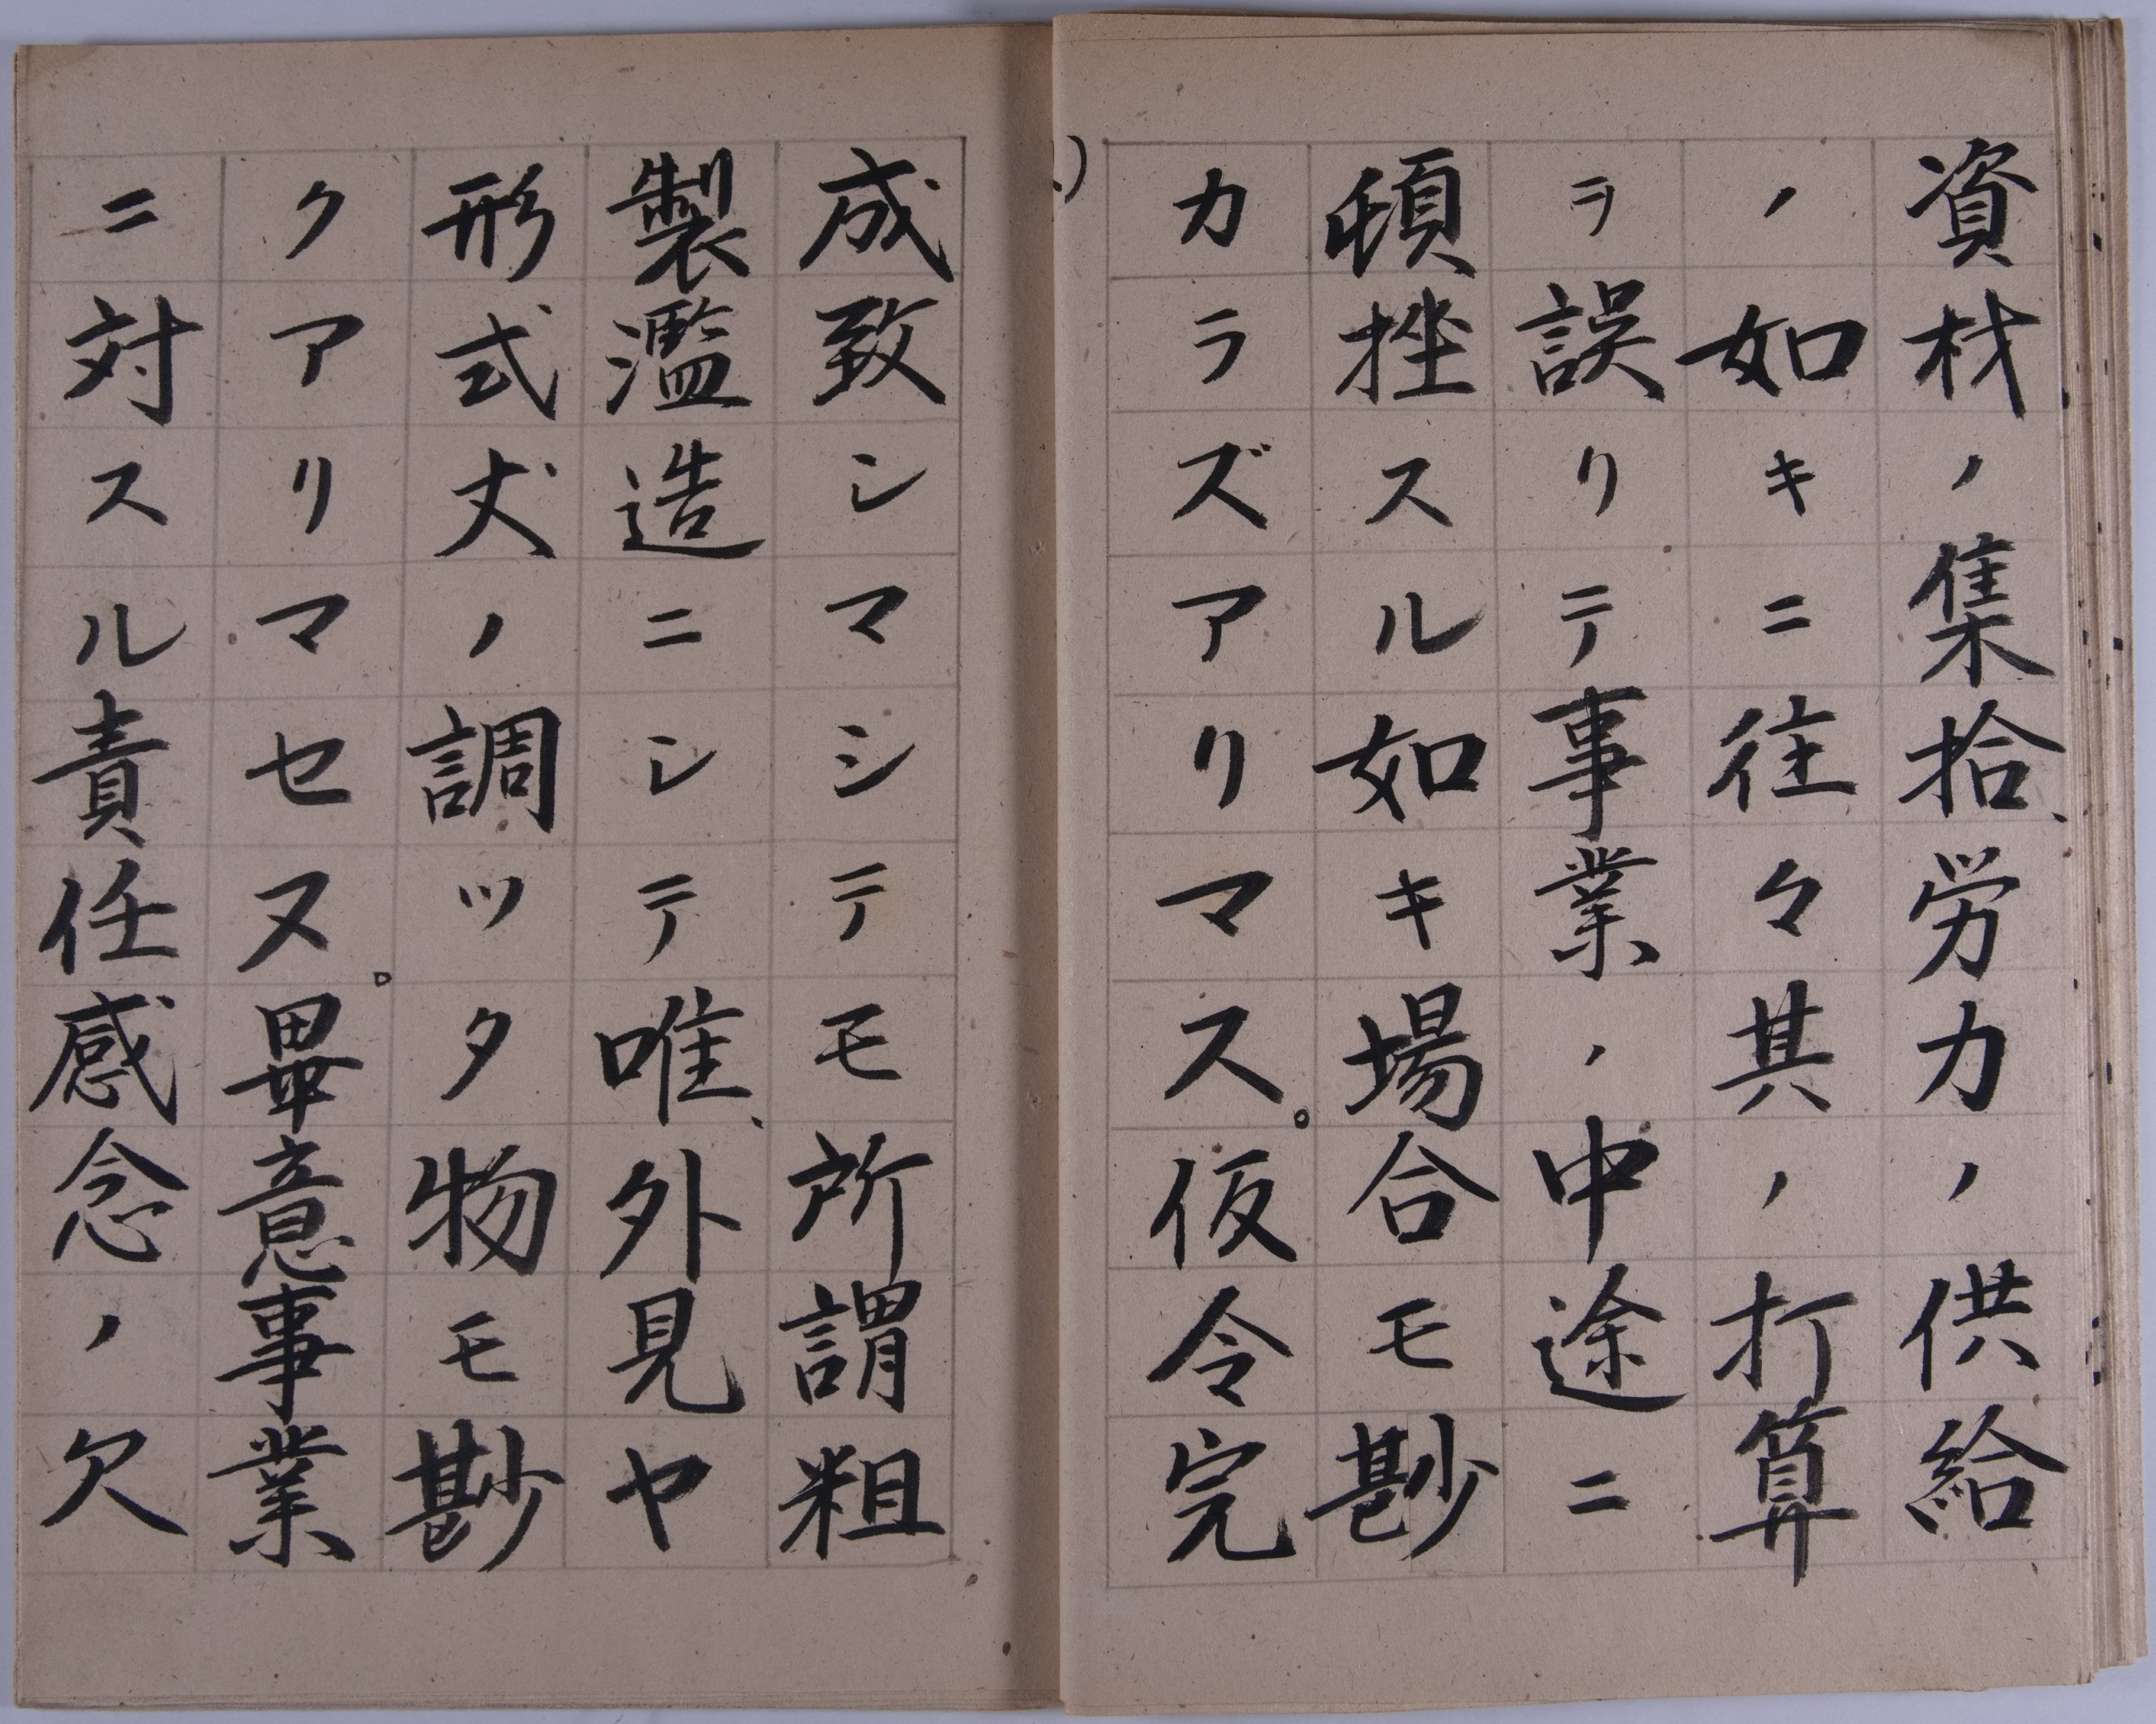 資材ノ集拾、労力ノ供給
ノ如キニ往々其ノ打算
ヲ誤リテ事業ノ中途ニ
頓挫スル如キ場合モ尠
カラズアリマス。仮令完
成致シマシテモ所謂粗
製濫造ニシテ唯、外見ヤ
形式丈ノ調ツタ物モ尠
クアリマセヌ。畢意事業
ニ対スル責任感念ノ欠